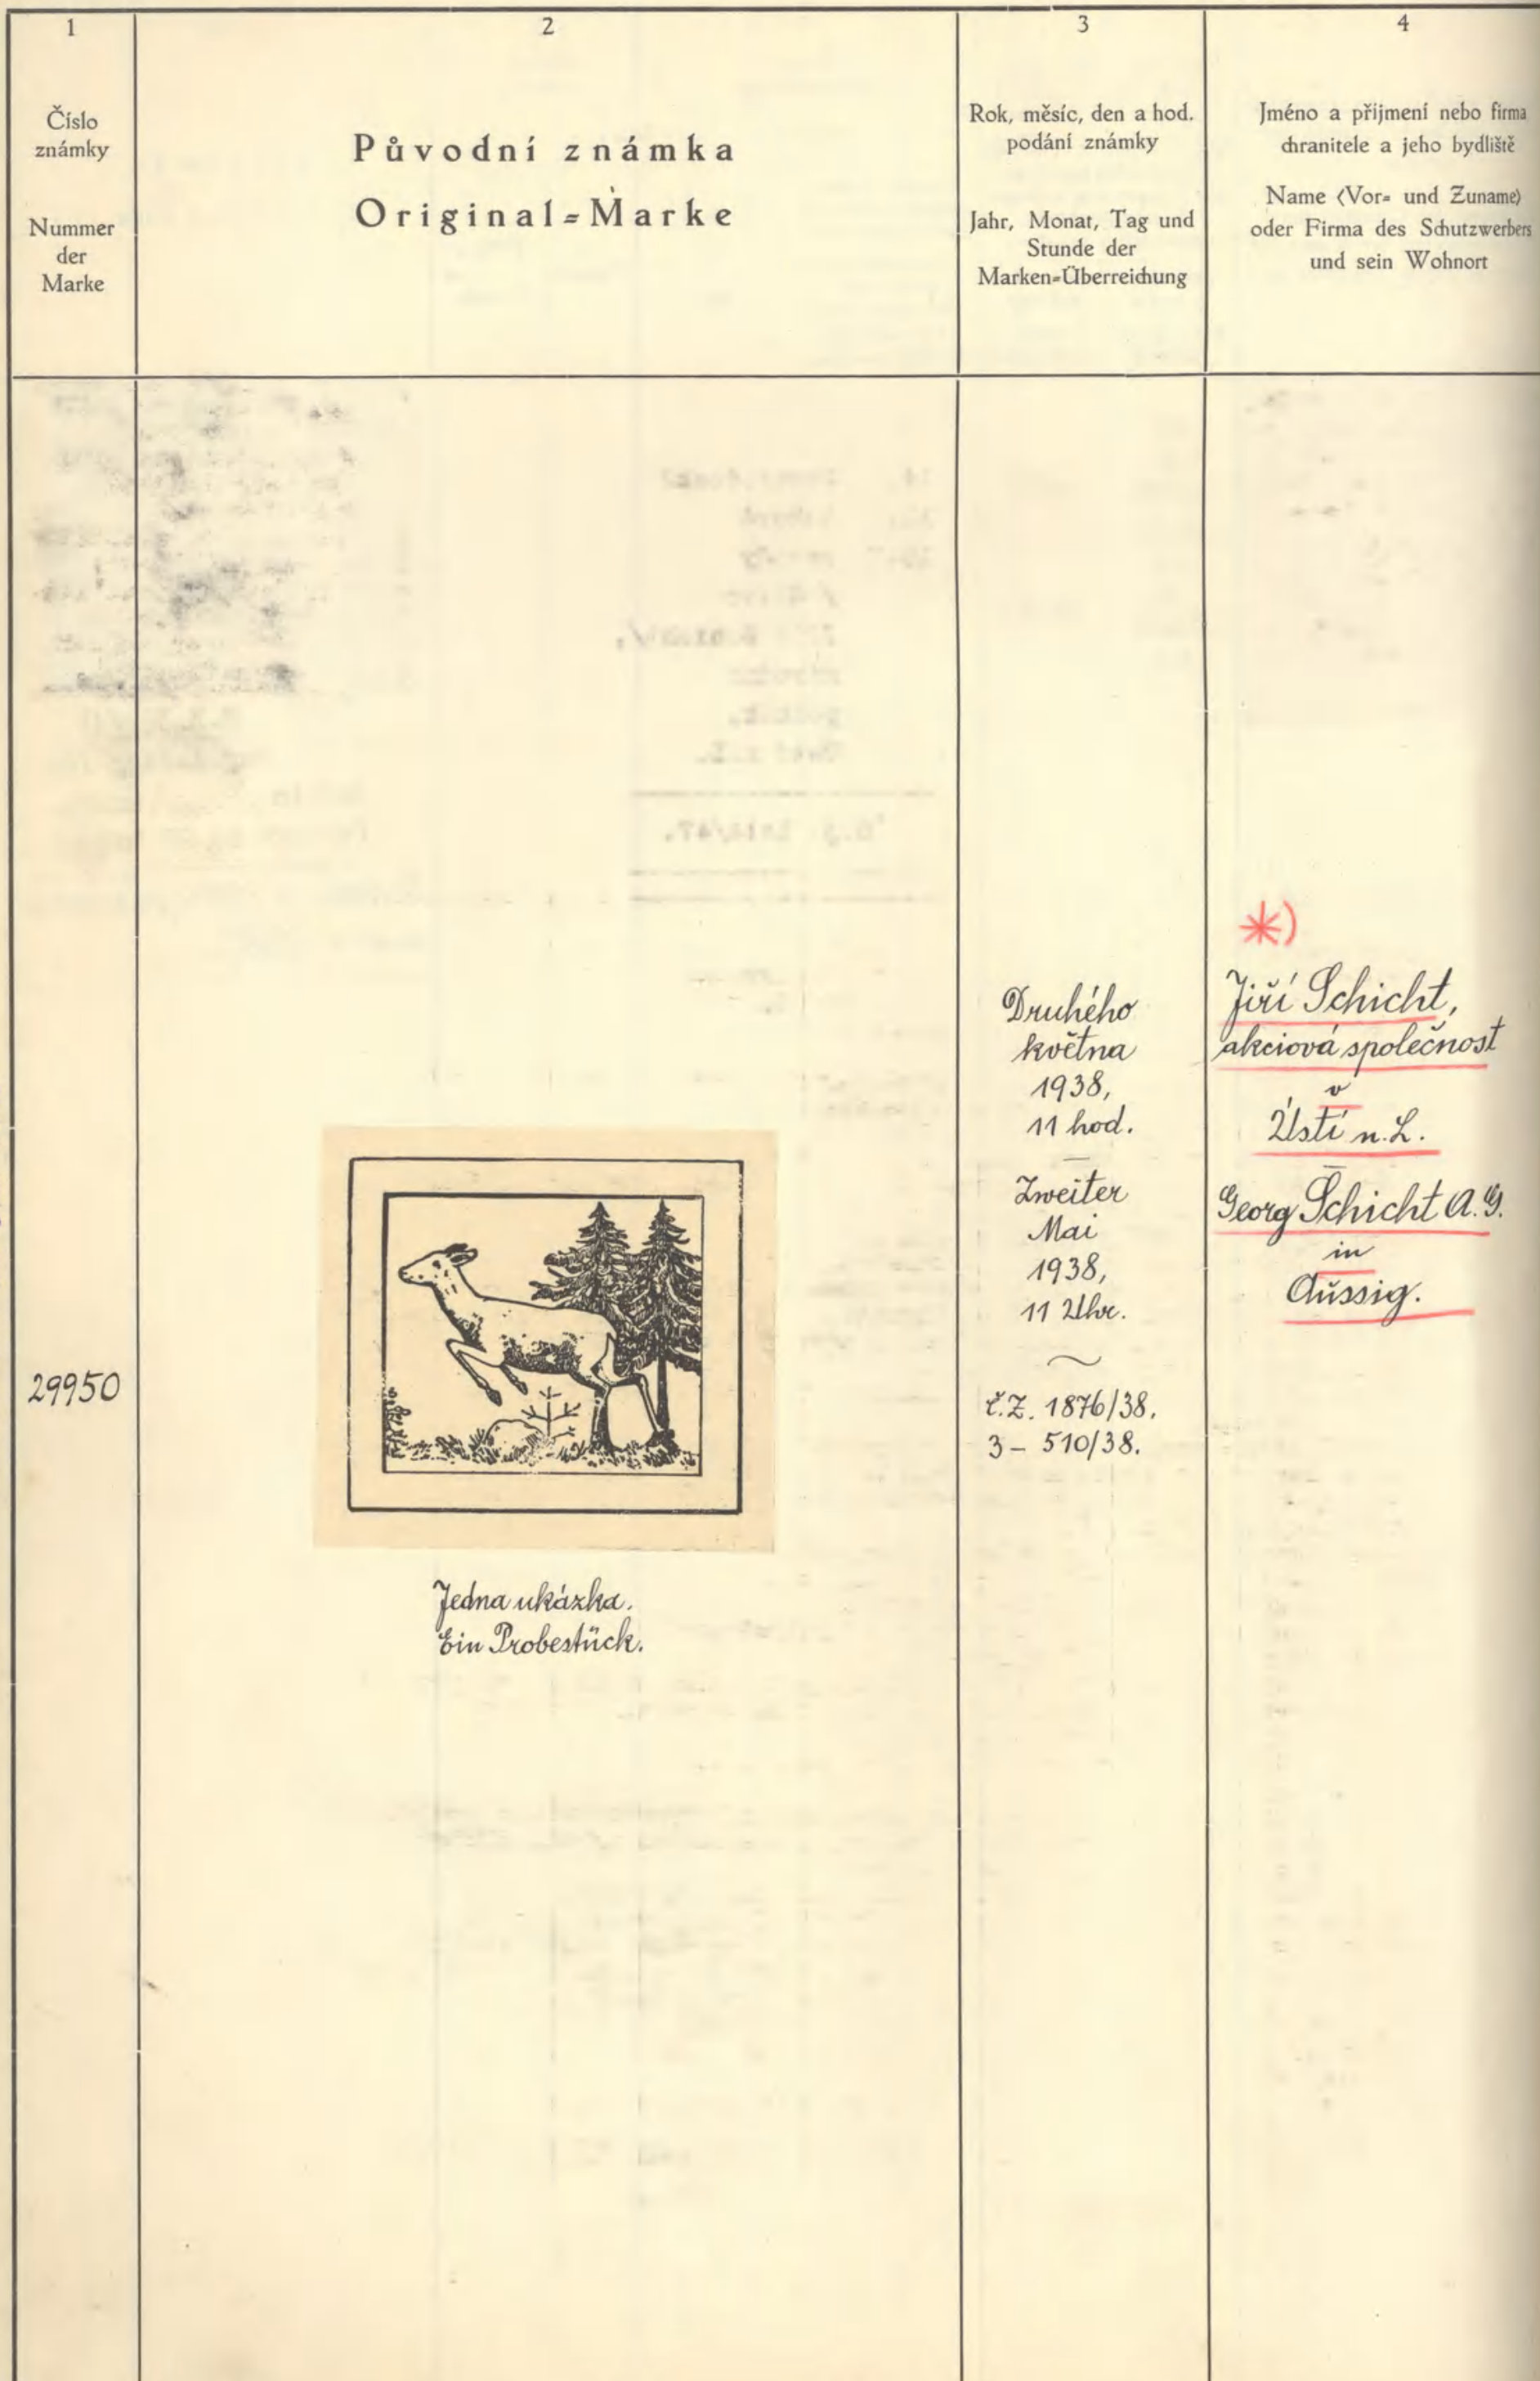 1
Číslo
známky
Nummer
der
Marke
2
Původní známka
Original-Marke
3
Rok, měsíc, den a hod.
podání známky
Jahr, Monat, Tag und
Stunde der
Marken-Überreichung
4
Jméno a přijmení nebo firma
chranitele a jeho bydliště
Name (Vor- und Zuname)
oder Firma des Schutzwerbers
und sein Wohnort
29950
Jedna ukázka.
Ein Probestück.
Druhého
května
1938,
11 hod.
Zweiter
Mai
1938,
11 Uhr.
č.Z. 1876/38.
3 – 510/38.
*)
Jiří Schicht,
akciová společnost
v
Ústí n. L.
Georg Schicht A. G.
in
Aussig.